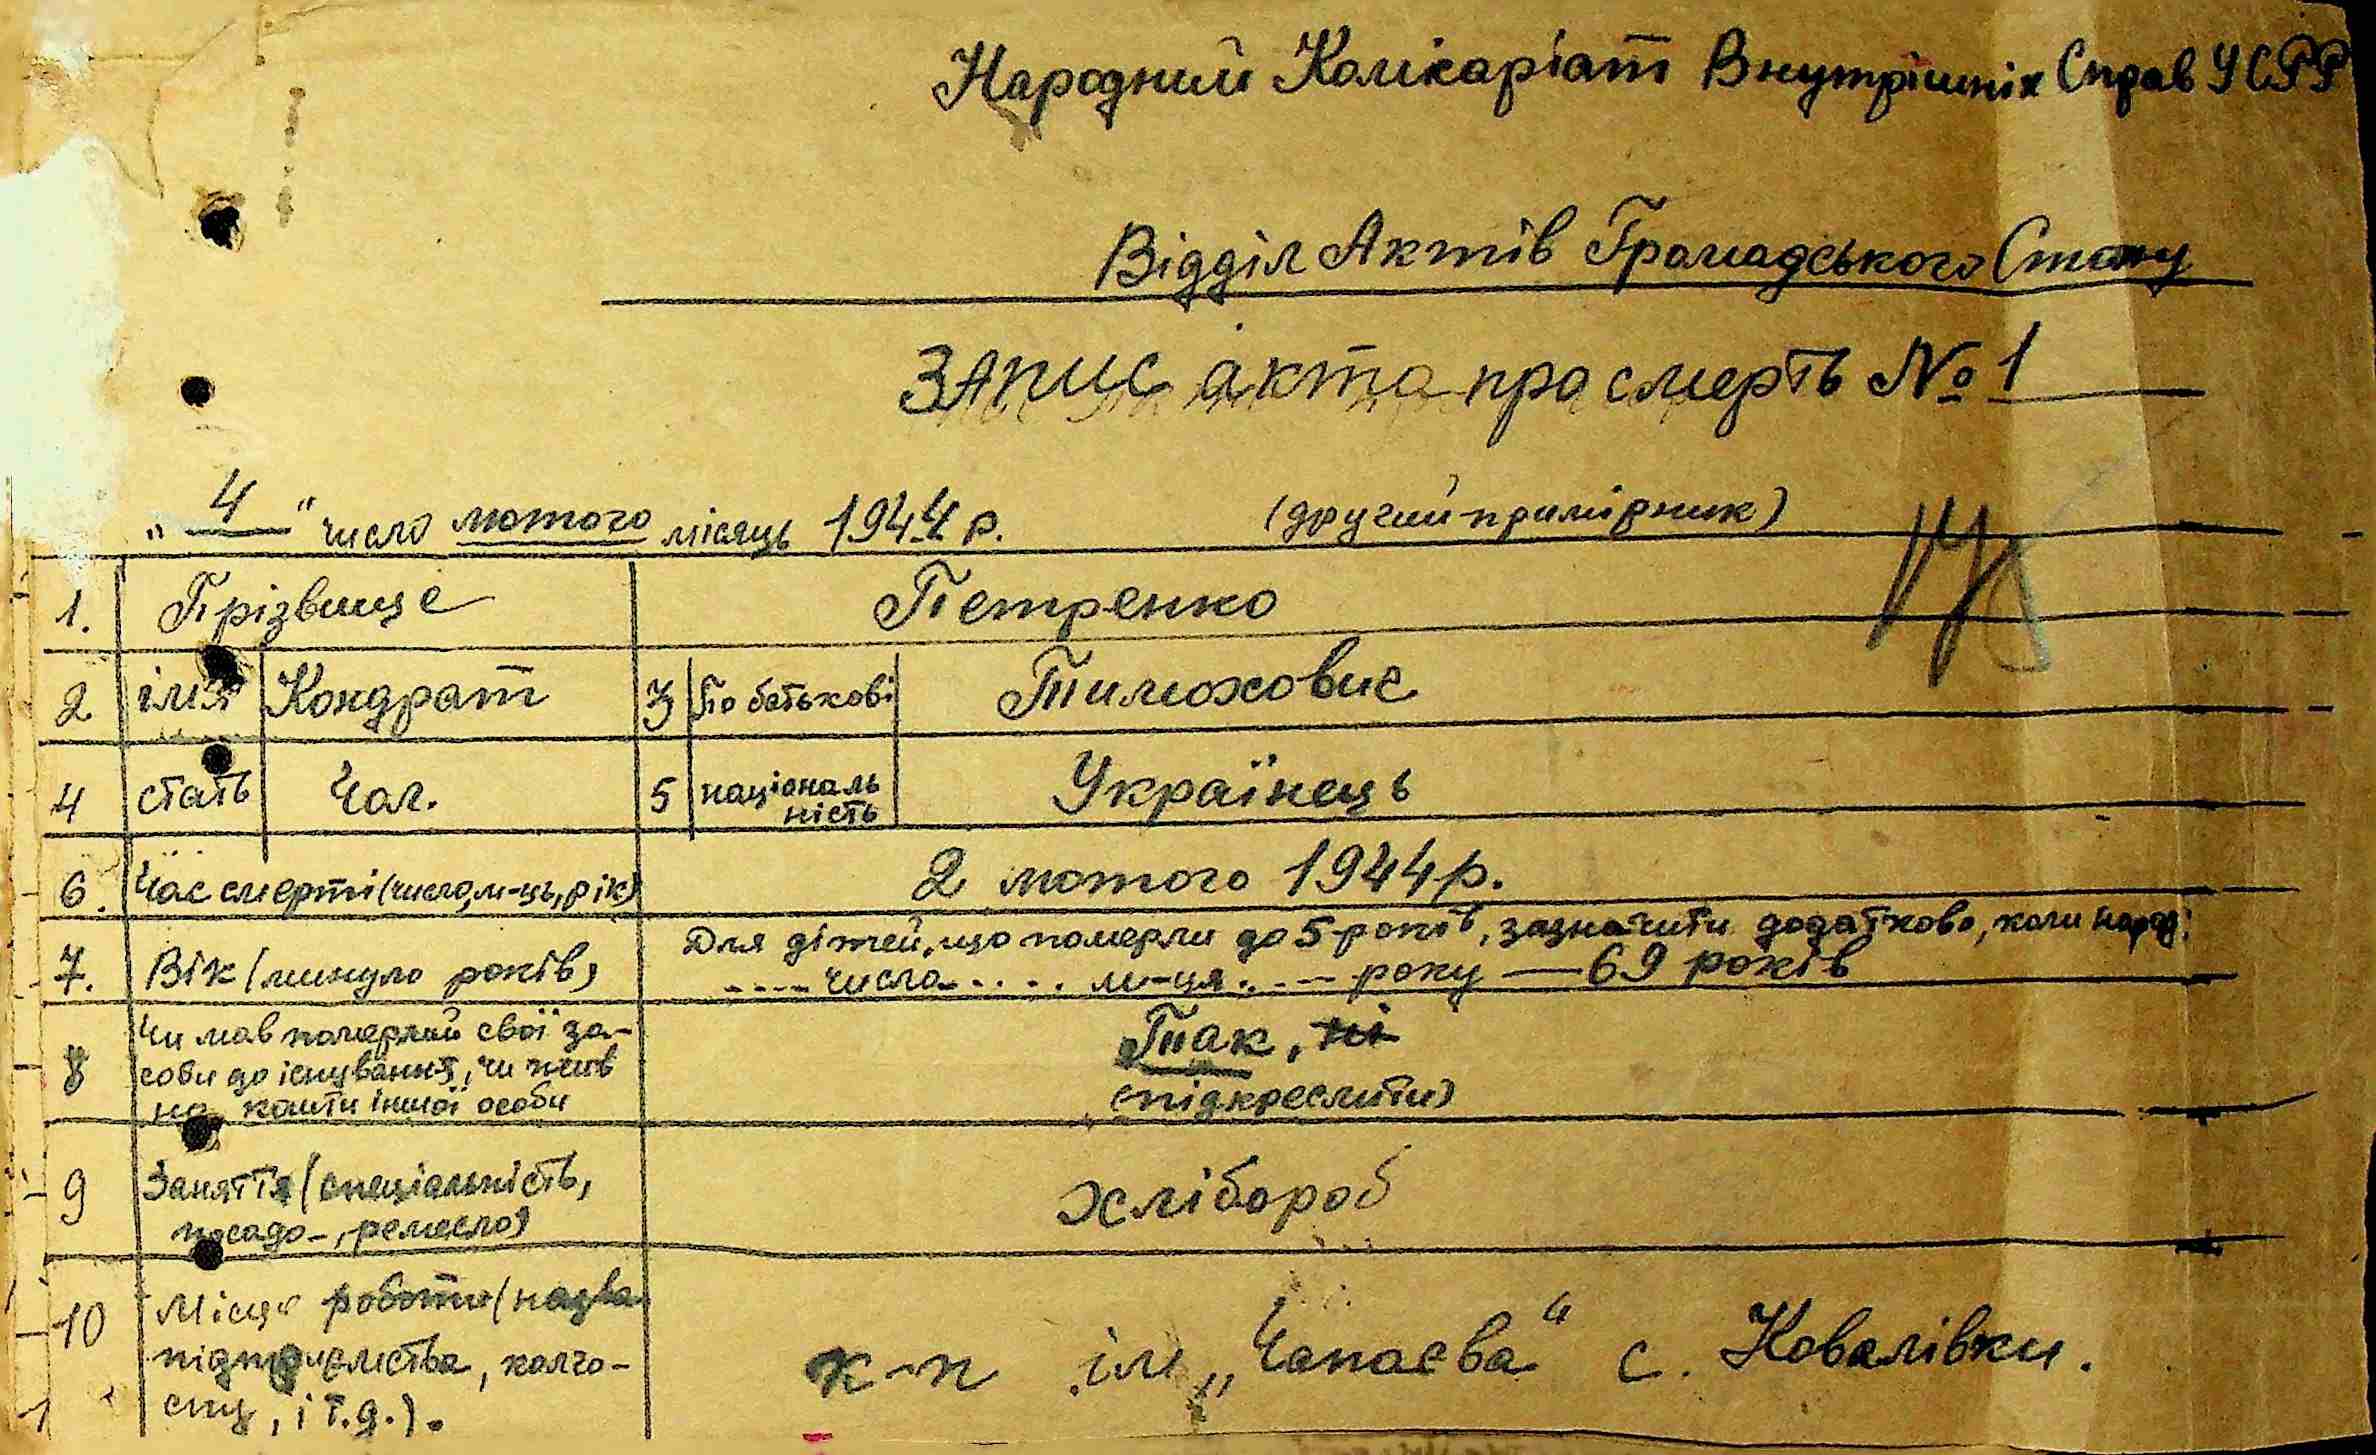 Народний Комікаріат Внутрішніх Справ УСРР
Відділ Актів Громадського Стану
ЗАПИС акта про смерть № 1
„ 4 “ число лютого місяць 1944 р. (другий примірник)
1. Прізвище Петренко
2 ім'я Кондрат 3 По батькові Тимохович
4 стать Чол. 5 національ
ність Українець
6. Час смерті (число, м-ць, рік) 2 лютого 1944 р.
Для дітей, що померли до 5 років, зазначити додатково, коли народ:
7. Вік (минуло років) .... числа ..... м-ця .... року — 69 років
8 Чи мав померлий свої за-
соби до існування, чи жив
на кошти іншої особи
Так, ні
(підкреслити)
9 Заняття (спеціальність,
посада-, ремесло)
хлібороб
10 Місце роботи (назва
підприємства, колго-
спу, і т.д.).
к-п ім „Чапаєва“ с. Ковалівки.